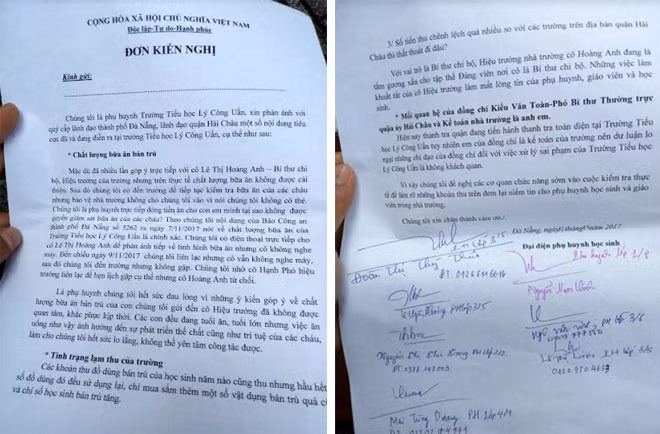 CỘNG HÒA XÃ HỘI CHỦ NGHĨA VIỆT NAM
Độc lập-Tự do-Hạnh phúc
ĐƠN KIẾN NGHỊ
Kính gửi:
Chúng tôi là phụ huynh Trường Tiểu học Lý Công Uẩn, xin phản ánh với
quý cấp lãnh đạo thành phố Đà Nẵng, lãnh đạo quận Hải Châu một số nội dung tiêu
cực đã và đang diễn ra tại trường Tiểu học Lý Công Uẩn, cụ thể như sau:
* Chất lượng bữa ăn bán trú
Mặc dù đã nhiều lần góp ý trực tiếp với cô Lê Thị Hoàng Anh – Bí thư chi
bộ, Hiệu trưởng của trường nhưng trên thực tế chất lượng bữa ăn không được cải
thiện. Sau đó chúng tôi có đến trường để tiếp tục kiểm tra bữa ăn của các cháu
nhưng bảo vệ nhà trường không cho chúng tôi vào vì nói chúng tôi không có thẻ.
Chúng tôi là phụ huynh trực tiếp đóng tiền ăn cho con em mình tại sao không được
quyền giám sát bữa ăn của các cháu? Theo chúng tôi nội dung của Báo Công an
thành phố Đà Nẵng số 5262 ra ngày 7/11/2017 nói về chất lượng bữa ăn của
Trường Tiểu học Lý Công Uẩn là chính xác. Chúng tôi có điện thoại trực tiếp cho
cô Lê Thị Hoàng Anh để phản ánh tiếp về tình hình bữa ăn nhưng cô không nghe
máy. Đến chiều ngày 9/11/2017 chúng tôi liên lạc nhưng cô vẫn không nghe máy,
sau đó chúng tôi đến trường nhưng không gặp. Chúng tôi nhờ cô Hạnh Phó hiệu
trưởng liên lạc để hẹn lịch gặp cụ thể nhưng cô Hoàng Anh từ chối.
Là phụ huynh chúng tôi hết sức đau lòng vì những ý kiến góp ý về chất
lượng bữa ăn bán trú của con chúng tôi gửi đến cô Hiệu trưởng đã không được
quan tâm, khắc phục kịp thời. Các con đều đang tuổi ăn, tuổi lớn nhưng việc ăn
uống như vậy ảnh hưởng đến sự phát triển thể chất cũng như trí tuệ của các cháu,
làm cho chúng tôi hết sức lo lắng, không thể yên tâm công tác được.
* Tình trạng lạm thu của trường
Các khoản thu đồ dùng bán trú của học sinh năm nào cũng thu nhưng hầu hết
số đồ dùng đó đều sử dụng lại, chỉ mua sắm thêm một số vật dụng bán trú quá c
và chỉ số học sinh bán trú tăng.
3/ Số tiền thu chênh lệch quá nhiều so với các trường trên địa bàn quận Hải
Châu thì thất thoát đi đâu?
Với vai trò là Bí thư chi bộ, Hiệu trưởng nhà trường cô Hoàng Anh đang là
tấm gương xấu cho tập thể Đảng viên nơi cô là Bí thư chi bộ. Những việc làm
khuất tất của cô Hiệu trưởng làm mất lòng tin của phụ huynh, giáo viên và học
sinh.
* Mối quan hệ của đồng chí Kiều Văn Toàn-Phó Bí thư Thường trực
quận ủy Hải Châu và Kế toán nhà trường là anh em.
Hiện nay thanh tra quận đang tiến hành thanh tra toàn diện tại Trường Tiểu
học Lý Công Uẩn tuy nhiên em của đồng chí là kế toán của trường nên dư luận lo
ngại những chỉ đạo của đồng chí đối với việc xử lý sai phạm của Trường Tiểu học
Lý Công Uẩn là không khách quan.
Vì vậy chúng tôi đề nghị các cơ quan chức năng sớm vào cuộc kiểm tra thực
tế để làm rõ những khoản thu trên đem lại niềm tin cho phụ huynh học sinh và giáo
viên trong nhà trường.
Chúng tôi xin chân thành cảm ơn./.
Đà Nẵng, ngày tháng năm 2017
Đại diện phụ huynh học sinh
lớp 3/5
Đoàn Thị
PH lớp 3/5
PH lớp 3/6
Nguyễn Thị
Mai Tùng Dương PH lớp 4/1